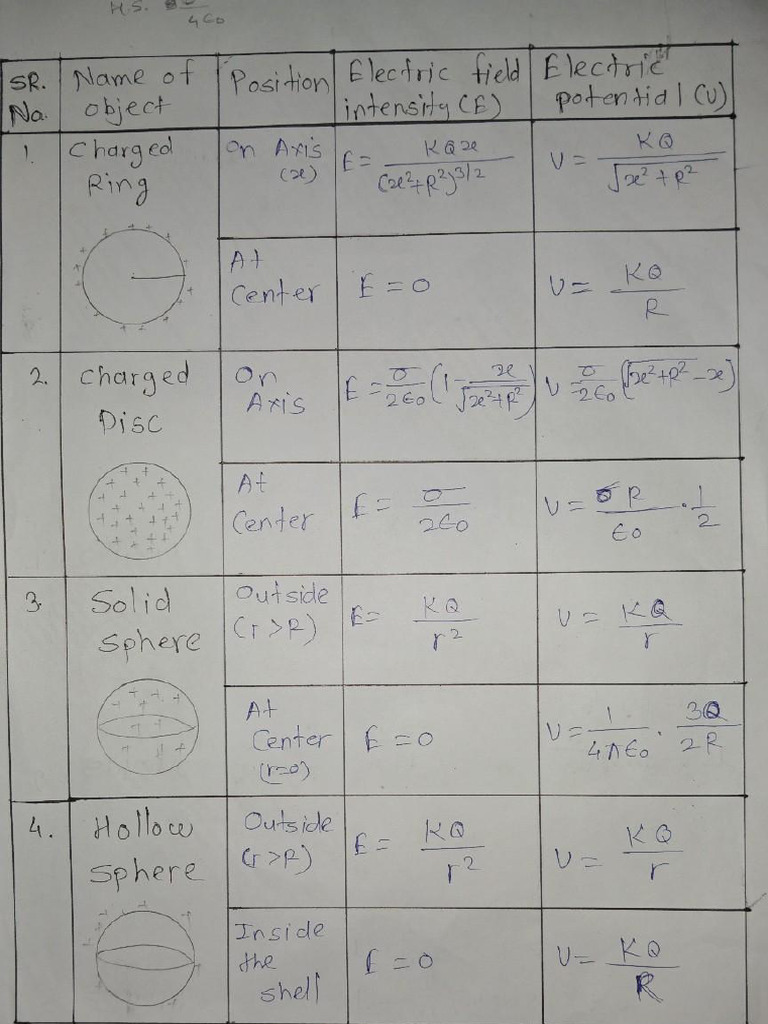 H.S.
4ε0
SR. No. | Name of object | Position | Electric field intensity (E) | Electric potential (V)
1. | Charged Ring | On Axis (x) | E = KQx / (x²+R²)^3/2 | V = KQ / √x²+R²
At Center | E = 0 | V = KQ / R
2. | Charged Disc | On Axis | E = σ/2ε0 (1 - x/√x²+R²) | V = σ/2ε0 (√x²+R² - x)
At Center | E = σ / 2ε0 | V = σR / ε0 · 1/2
3. | Solid Sphere | Outside (r >R) | E = KQ / r² | V = KQ / r
At Center (r=0) | E = 0 | V = 1/4πε0 · 3Q/2R
4. | Hollow Sphere | Outside (r >R) | E = KQ / r² | V = KQ / r
Inside the shell | E = 0 | V = KQ / R